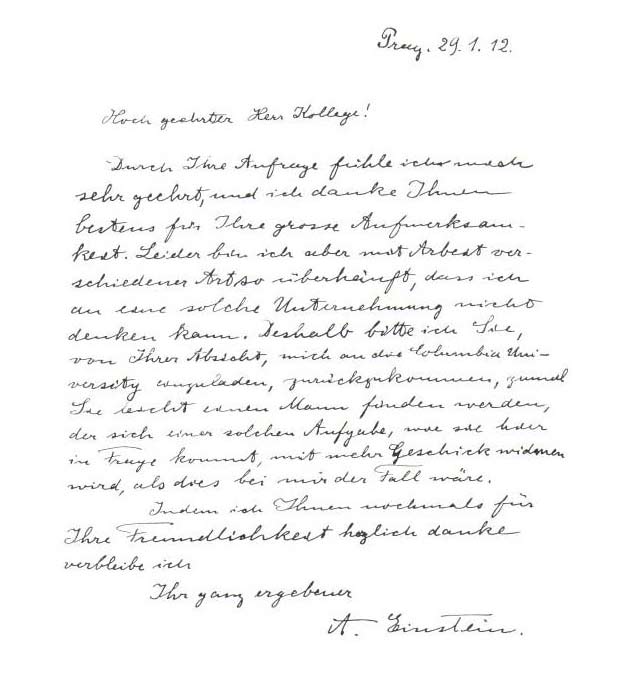 Prag. 29.1.12.
Hoch geehrter Herr Kollege!
Durch Ihre Anfrage fühle ich mich
sehr geehrt, und ich danke Ihnen
bestens für Ihre grosse Aufmerksam-
keit. Leider bin ich aber mit Arbeit ver-
schiedener Art so überhäuft, dass ich
an eine solche Unternehmung nicht
denken kann. Deshalb bitte ich Sie,
von Ihrer Absicht, mich an die Columbia Uni-
versity einzuladen, zurückzukommen, zumal
Sie leicht einen Mann finden werden,
der sich einer solchen Aufgabe, wie sie hier
in Frage kommt, mit mehr Geschick widmen
wird, als dies bei mir der Fall wäre.
Indem ich Ihnen nochmals für
Ihre Freundlichkeit herzlich danke
verbleibe ich
Ihr ganz ergebener
A. Einstein.